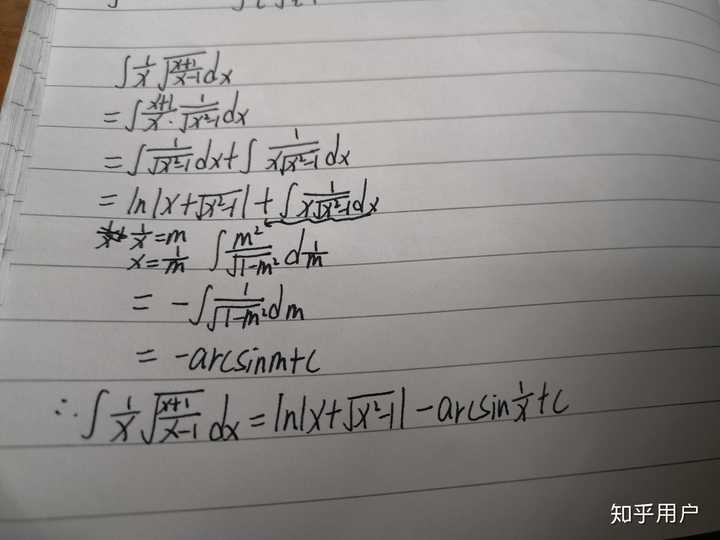 ∫ 1/x √((x+1)/(x-1)) dx
= ∫ (x+1)/x · 1/√(x²-1) dx
= ∫ 1/√(x²-1) dx + ∫ 1/(x√(x²-1)) dx
= ln|x+√(x²-1)| + ∫ 1/(x√(x²-1)) dx
1/x = m
x = 1/m ∫ m²/√(1-m²) d 1/m
= -∫ 1/√(1-m²) dm
= -arcsinm+c
∴ ∫ 1/x √((x+1)/(x-1)) dx = ln|x+√(x²-1)| - arcsin 1/x + c
知乎用户